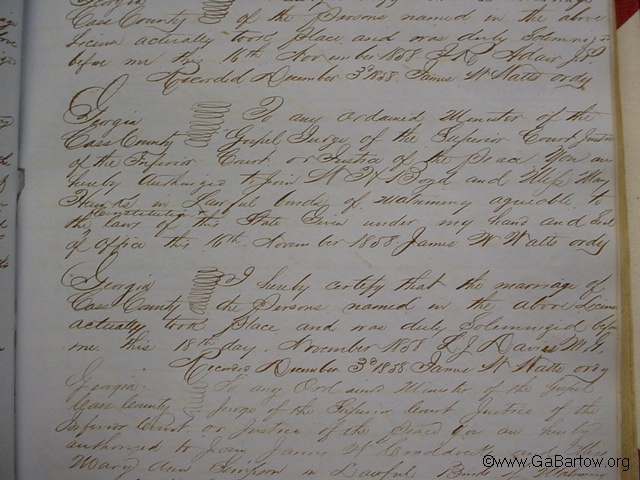 Georgia
Cass County of the Persons named in the above
Licence actually took place and was duly Solemnized
before me this 16th November 1858 J. R. Adair J.P.
Recorded December 3d 1858 James W Watts ordy
Georgia To any ordained Minister of the
Cass County Gospel Judge of the Superior Court Justice
of the Inferior Court or Justice of the Peace You are
hereby Authorized to join W K Boyd and Miss Mary
Hawks in Lawful bonds of Matrimony agreeable to
the Constitution &
the laws of this State Given under my hand and Seal
of office this 16th November 1858 James W Watts ordy
Georgia I hereby certify that the marriage of
Cass County the Persons named in the above Licence
actually took place and was duly Solemnized before
me this 18th day November 1858 Davis M.G.
Recorded December 3d 1858 James W Watts ordy
Georgia To any Ordained Minister of the Gospel
Cass County Judge of the Superior Court Justice of the
Inferior Court or Justice of the Peace You are hereby
authorized to Join James and Miss
Mary Ann in Lawful Bonds of Matrimony
©www.GaBartow.org